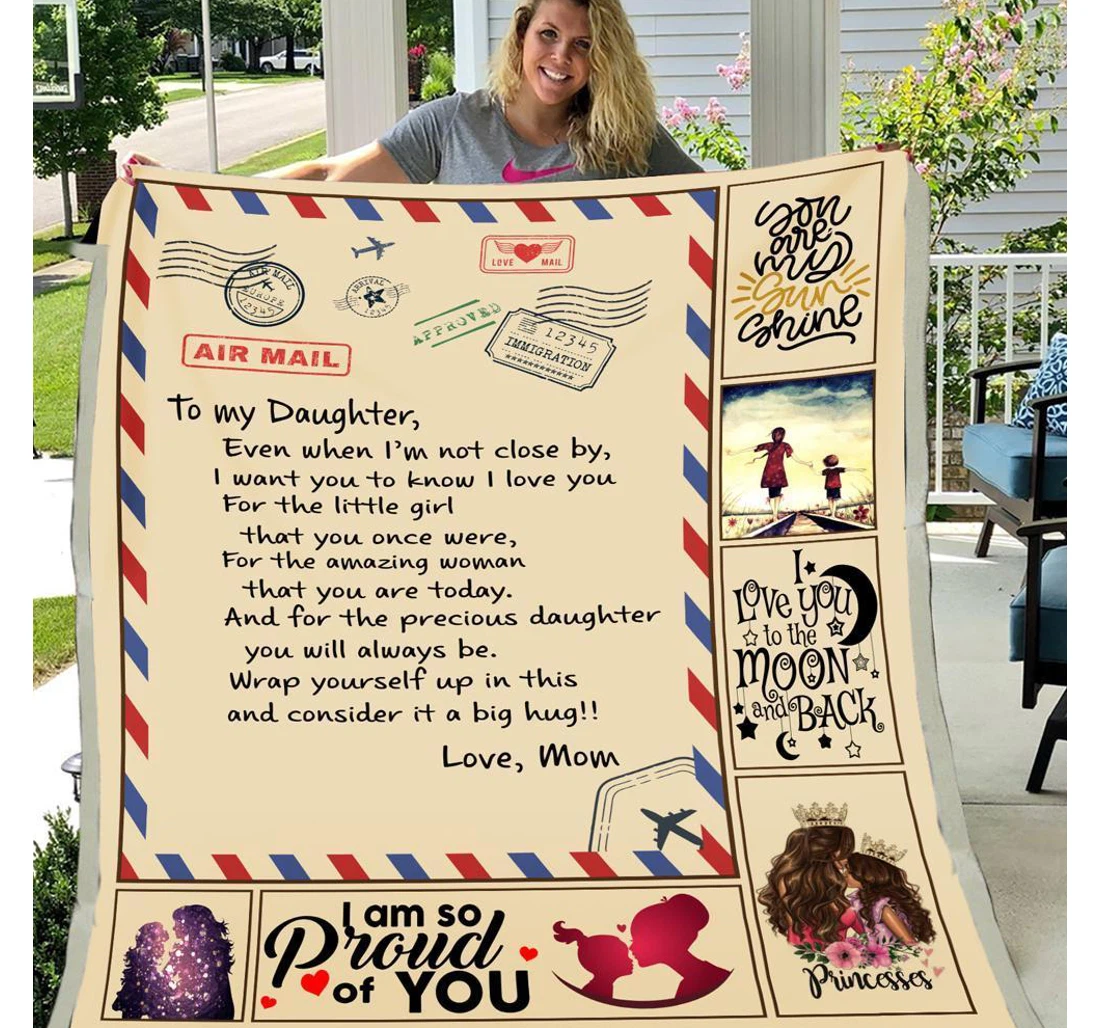 SPALDING
AIR MAIL
EUROPE
12345
ARRIVAL
12345
LOVE MAIL
APPROVED
12345
IMMIGRATION
AIR MAIL
To my Daughter,
Even when I'm not close by,
I want you to know I love you
For the little girl
that you once were,
For the amazing woman
that you are today.
And for the precious daughter
you will always be.
Wrap yourself up in this
and consider it a big hug!!
Love, Mom
you
are
my
Sun
shine
I
Love you
to the
MOON
and BACK
Princesses
I am so
Proud
of YOU